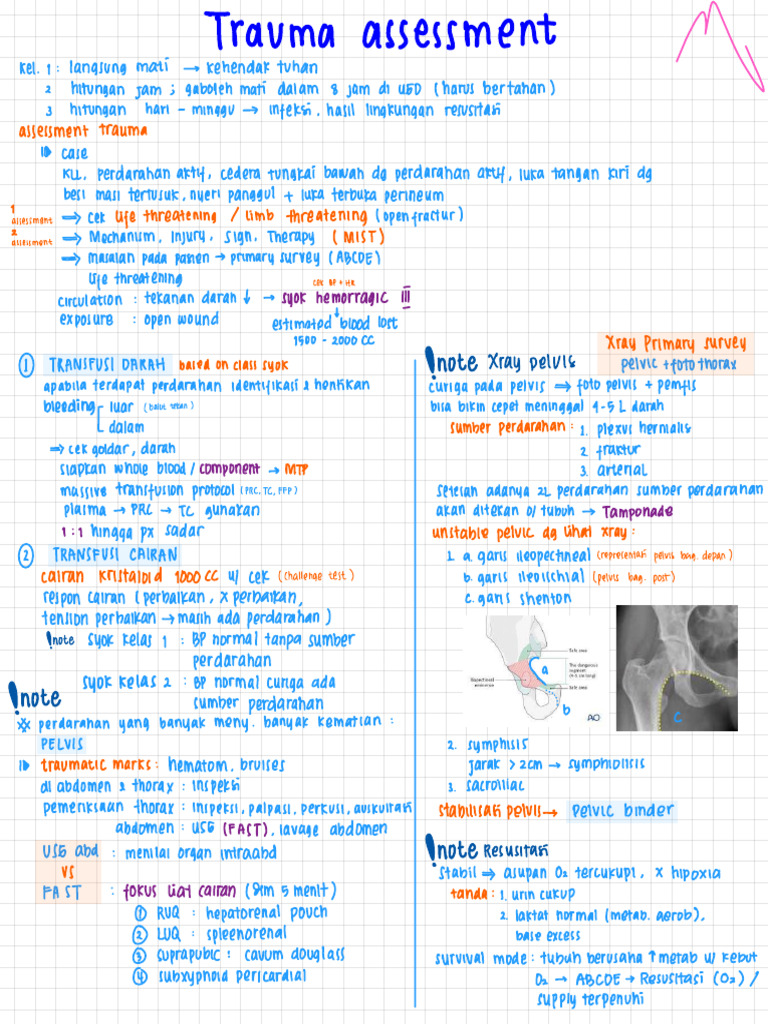 Trauma assessment
Kel. 1 : langsung mati → kehendak tuhan
2 hitungan jam ; gaboleh mati dalam 8 jam di UED (harus bertahan)
3 hitungan hari - minggu → infeksi, hasil lingkungan resusitasi
assessment trauma
case
KLL, perdarahan aktif, cedera tungkai bawah dg perdarahan aktif, luka tangan kiri dg
besi masi tertusuk, nyeri panggul + luka terbuka perineum
1 assessment ⇒ cek life threatening / limb threatening (open fractur)
2 assessment ⇒ Mechanism, Injury, Sign, Therapy (MIST)
⇒ masalah pada pasien → primary survey (ABCDE)
life threatening
cek BP + HR
circulation : tekanan darah ↓ → syok hemorragic III
exposure : open wound
↓
estimated blood lost
1500 - 2000 CC
① TRANSFUSI DARAH based on class syok
apabila terdapat perdarahan identifikasi & hentikan
bleeding luar (balut tekan)
dalam
⇒ cek goldar, darah
siapkan whole blood / component → MTP
massive transfusion protocol (PRC, TC, FFP)
plasma → PRC → TC gunakan
1:1 hingga px sadar
② TRANSFUSI CAIRAN
cairan kristaloid 1000 CC u/ cek (challenge test)
respon cairan (perbaikan, x perbaikan,
tension perbaikan → masih ada perdarahan)
!note syok kelas 1 : BP normal tanpa sumber
perdarahan
syok kelas 2 : BP normal curiga ada
sumber perdarahan
!note
※ perdarahan yang banyak meny. banyak kematian :
PELVIS
traumatic marks : hematom, bruises
di abdomen & thorax : inspeksi
pemeriksaan thorax : inspeksi, palpasi, perkusi, auskultasi
abdomen : USG (FAST), lavage abdomen
USG abd : menilai organ intraabd
VS
FAST : fokus liat cairan (dlm 5 menit)
① RUQ : hepatorenal pouch
② LUQ : spleenorenal
③ suprapubic : cavum douglass
④ subxyphoid pericardial
Xray Primary survey
pelvic + foto thorax
!note Xray pelvis
curiga pada pelvis ⇒ foto pelvis + pemfis
bisa bikin cepet meninggal 4-5 L darah
sumber perdarahan : 1. plexus hernialis
2. fraktur
3. arterial
setelah adanya 2L perdarahan sumber perdarahan
akan ditekan o/ tubuh → Tamponade
unstable pelvic dg lihat xray :
1. a. garis ileopectineal (representasi pelvis bag. depan)
b. garis ileoischial (pelvis bag. post)
c. garis shenton
Safe area
The dangerous
segment
Safe area
a
b
AO
c
2. symphisis
jarak > 2cm → symphiolisis
3. sacroiliac
stabilisasi pelvis → pelvic binder
!note Resusitasi
stabil ⇒ asupan O2 tercukupi, x hipoxia
tanda : 1. urin cukup
2. laktat normal (metab. aerob),
base excess
survival mode : tubuh berusaha ↑ metab u/ kebut
O2 → ABCDE → Resusitasi (O2) /
supply terpenuhi